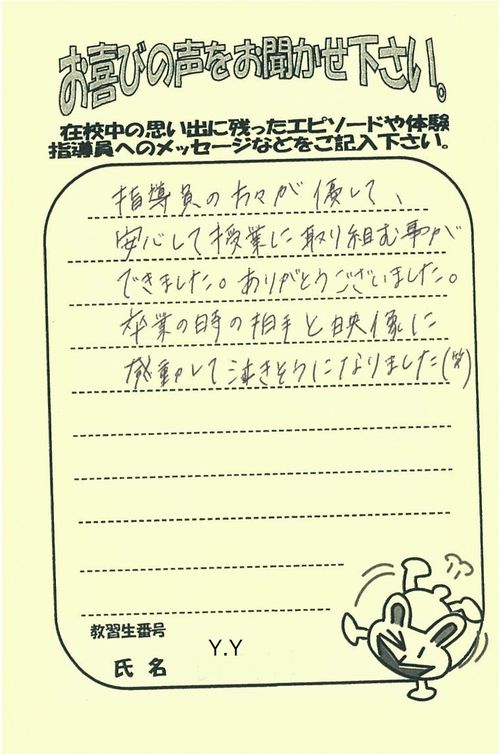 お喜びの声をお聞かせ下さい。
在校中の思い出に残ったエピソードや体験
指導員へのメッセージなどをご記入下さい。
指導員の方々が優して、
安心して授業に取り組む事が
できました。ありがとうございました。
卒業の時の拍手と映像に
感動して泣きそうになりました(笑)
教習生番号
氏名 Y.Y